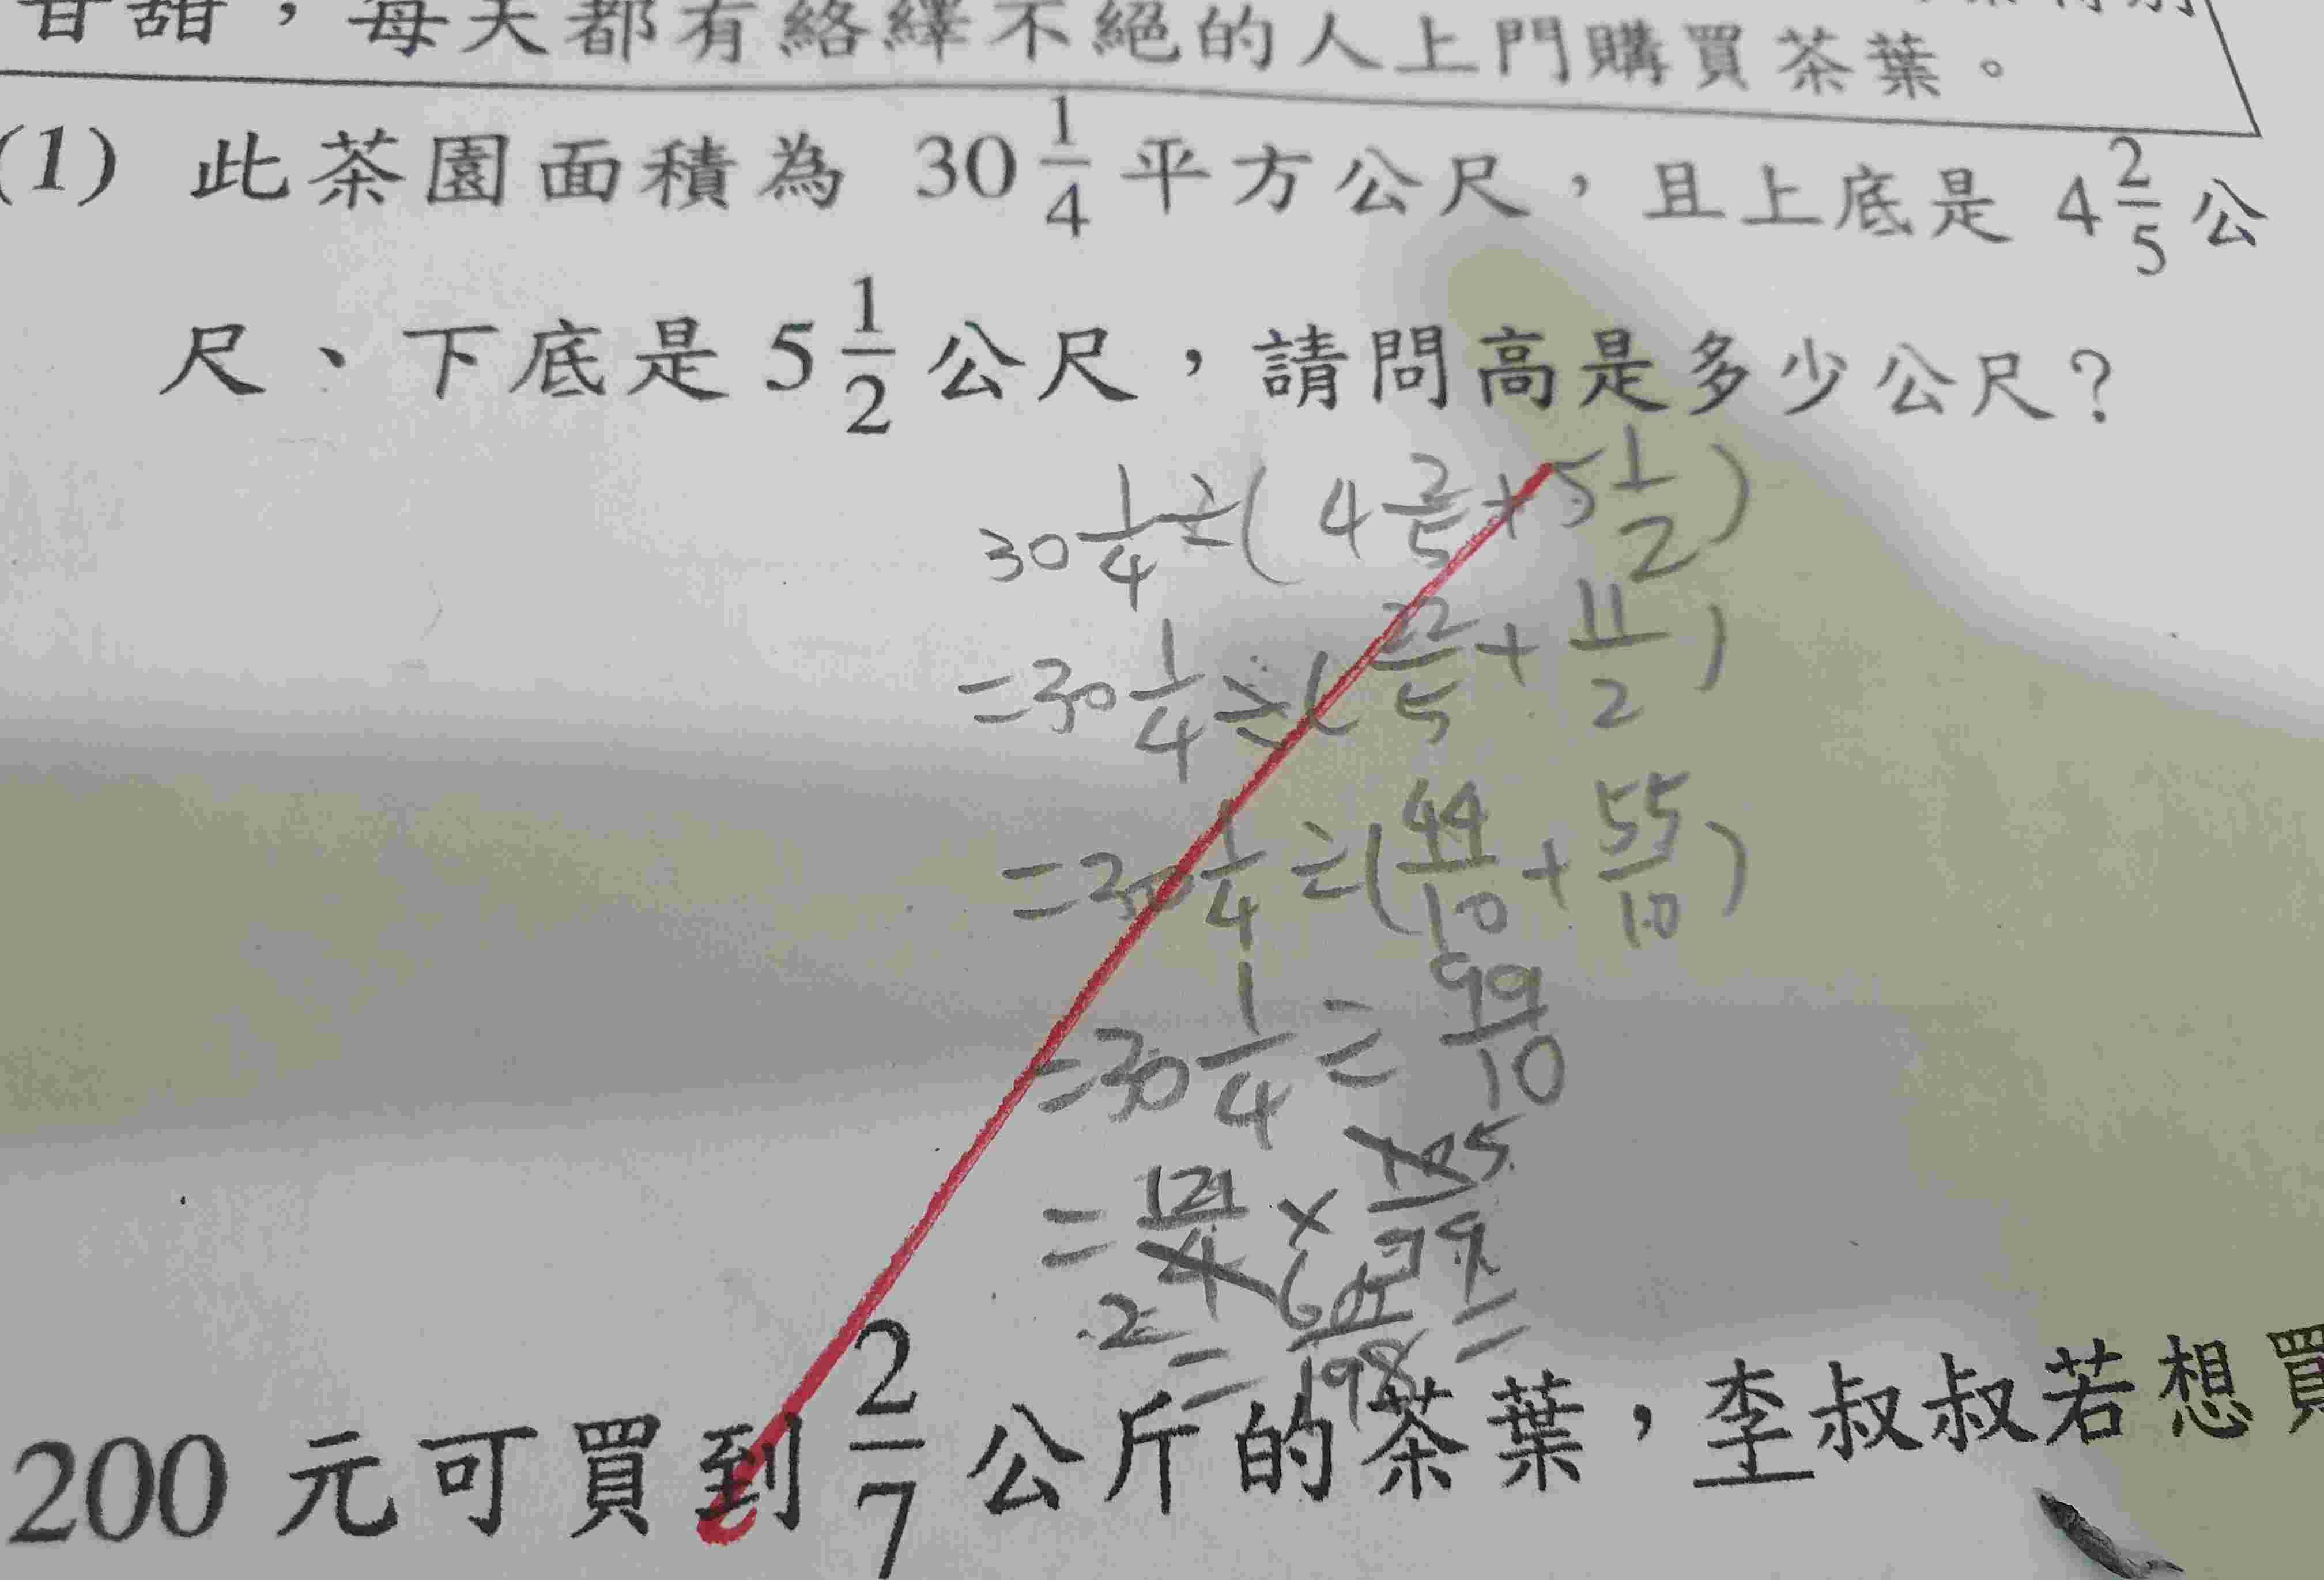 甘甜，每天都有絡繹不絕的人上門購買茶葉。
(1) 此茶園面積為 30 1/4 平方公尺，且上底是 4 2/5 公
尺、下底是 5 1/2 公尺，請問高是多少公尺？
30 1/4 ÷ ( 4 2/5 + 5 1/2 )
= 30 1/4 ÷ ( 22/5 + 11/2 )
= 30 1/4 ÷ ( 44/10 + 55/10 )
= 30 1/4 ÷ 99/10
= 121/4 × 10/99
5
2
= 605/198 =
200 元可買到 2/7 公斤的茶葉，李叔叔若想買